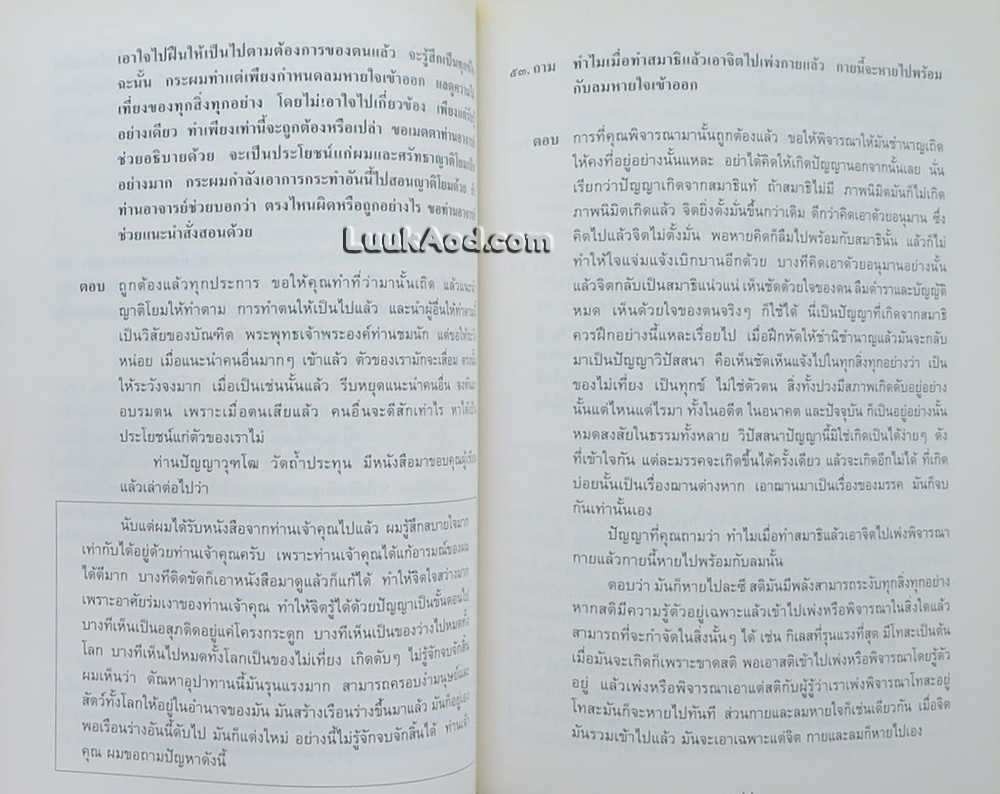 เอาใจไปฝืนให้เป็นไปตามต้องการของตนแล้ว จะรู้สึกเป็นทุกข์
ฉะนั้น กระผมทำแต่เพียงกำหนดลมหายใจเข้าออก แลดูความไม่
เที่ยงของทุกสิ่งทุกอย่าง โดยไม่เอาใจไปเกี่ยวข้อง เพียงแต่
อย่างเดียว ทำเพียงเท่านี้จะถูกต้องหรือเปล่า ขอเมตตาท่านอาจารย์
ช่วยอธิบายด้วย จะเป็นประโยชน์แก่ผมและศรัทธาญาติโยม
อย่างมาก กระผมกำลังเอาการกระทำอันนี้ไปสอนญาติโยมด้วย
ท่านอาจารย์ช่วยบอกว่า ตรงไหนผิดหรือถูกอย่างไร ขอท่านอาจารย์
ช่วยแนะนำสั่งสอนด้วย
LuukAod.com
ตอบ ถูกต้องแล้วทุกประการ ขอให้คุณทำที่ว่ามานั้นเถิด แล้วแนะนำ
ญาติโยมให้ทำตาม การทำตนให้เป็นไปแล้ว และนำผู้อื่นให้ทำตามนี้
เป็นวิสัยของบัณฑิต พระพุทธเจ้าพระองค์ท่านชมนัก แต่ขอให้ระวัง
หน่อย เมื่อแนะนำคนอื่นมากๆ เข้าแล้ว ตัวของเรามักจะเสื่อม ตรงนี้
ให้ระวังจงมาก เมื่อเป็นเช่นนั้นแล้ว รีบหยุดแนะนำคนอื่น จงหันมา
อบรมตน เพราะเมื่อตนเสียแล้ว คนอื่นจะดีสักเท่าไร หาได้เป็น
ประโยชน์แก่ตัวของเราไม่
ท่านปัญญาวุฑโฒ วัดถ้ำประทุน มีหนังสือมาขอบคุณผู้เขียน
แล้วเล่าต่อไปว่า
นับแต่ผมได้รับหนังสือจากท่านเจ้าคุณไปแล้ว ผมรู้สึกสบายใจมาก
เท่ากับได้อยู่ด้วยท่านเจ้าคุณครับ เพราะท่านเจ้าคุณได้แก้อารมณ์ของผม
ได้ดีมาก บางทีติดขัดก็เอาหนังสือมาดูแล้วก็แก้ได้ ทำให้จิตใจสว่างมาก
เพราะอาศัยร่มเงาของท่านเจ้าคุณ ทำให้จิตรู้ได้ด้วยปัญญาเป็นขั้นตอนไป
บางทีเห็นเป็นอสุภติดอยู่แค่โครงกระดูก บางทีเห็นเป็นของว่างไปหมดทั้ง
โลก บางทีเห็นไปหมดทั้งโลกเป็นของไม่เที่ยง เกิดดับๆ ไม่รู้จักจบจักสิ้น
ผมเห็นว่า ตัณหาอุปาทานนี้มันรุนแรงมาก สามารถครอบงำมนุษย์และ
สัตว์ทั้งโลกให้อยู่ในอำนาจของมัน มันสร้างเรือนร่างขึ้นมาแล้ว มันก็อยู่เอง
พอเรือนร่างอันนี้ดับไป มันก็แต่งใหม่ อย่างนี้ไม่รู้จักจบจักสิ้นได้ ท่านเจ้า
คุณ ผมขอถามปัญหาดังนี้
๕๓. ถาม ทำไมเมื่อทำสมาธิแล้วเอาจิตไปเพ่งกายแล้ว กายนี้จะหายไปพร้อม
กับลมหายใจเข้าออก
ตอบ การที่คุณพิจารณามานั้นถูกต้องแล้ว ขอให้พิจารณาให้มันชำนาญเถิด
ให้คงที่อยู่อย่างนั้นแหละ อย่าได้คิดให้เกิดปัญญานอกจากนั้นเลย นั่น
เรียกว่าปัญญาเกิดจากสมาธิแท้ ถ้าสมาธิไม่มี ภาพนิมิตมันก็ไม่เกิด
ภาพนิมิตเกิดแล้ว จิตยิ่งตั้งมั่นขึ้นกว่าเดิม ดีกว่าคิดเอาด้วยอนุมาน ซึ่ง
คิดไปแล้วจิตไม่ตั้งมั่น พอหายคิดก็ลืมไปพร้อมกับสมาธินั้น แล้วก็ไม่
ทำให้ใจแจ่มแจ้งเบิกบานอีกด้วย บางทีคิดเอาด้วยอนุมานอย่างนั้น
แล้วจิตกลับเป็นสมาธิแน่วแน่ เห็นชัดด้วยใจของตน ลืมตำราและบัญญัติ
หมด เห็นด้วยใจของตนจริงๆ ก็ใช้ได้ นี่เป็นปัญญาที่เกิดจากสมาธิ
ควรฝึกอย่างนี้แหละเรื่อยไป เมื่อฝึกหัดให้ชำนิชำนาญแล้วมันจะกลับ
มาเป็นปัญญาวิปัสสนา คือเห็นชัดเห็นแจ้งไปในทุกสิ่งทุกอย่างว่า เป็น
ของไม่เที่ยง เป็นทุกข์ ไม่ใช่ตัวตน สิ่งทั้งปวงมีสภาพเกิดดับอยู่อย่าง
นั้นแต่ไหนแต่ไรมา ทั้งในอดีต ในอนาคต และปัจจุบัน ก็เป็นอยู่อย่างนั้น
หมดสงสัยในธรรมทั้งหลาย วิปัสสนาปัญญานี้มิใช่เกิดเป็นได้ง่ายๆ ดัง
ที่เข้าใจกัน แต่ละมรรคจะเกิดขึ้นได้ครั้งเดียว แล้วจะเกิดอีกไม่ได้ ที่เกิด
บ่อยนั้นเป็นเรื่องฌานต่างหาก เอาฌานมาเป็นเรื่องของมรรค มันก็จบ
กันเท่านั้นเอง
ปัญญาที่คุณถามว่า ทำไมเมื่อทำสมาธิแล้วเอาจิตไปเพ่งพิจารณา
กายแล้วกายนี้หายไปพร้อมกับลมนั้น
ตอบว่า มันก็หายไปละซี สติมันมีพลังสามารถระงับทุกสิ่งทุกอย่าง
หากสติมีความรู้ตัวอยู่เฉพาะแล้วเข้าไปเพ่งหรือพิจารณาในสิ่งใดแล้ว
สามารถที่จะกำจัดในสิ่งนั้นๆ ได้ เช่น กิเลสที่รุนแรงที่สุด มีโทสะเป็นต้น
เมื่อมันจะเกิดก็เพราะขาดสติ พอเอาสติเข้าไปเพ่งหรือพิจารณาโดยรู้ตัว
อยู่ แล้วเพ่งหรือพิจารณาเอาแต่สติกับผู้รู้ว่าเราเพ่งพิจารณาโทสะอยู่
โทสะมันก็จะหายไปทันที ส่วนกายและลมหายใจก็เช่นเดียวกัน เมื่อจิต
มันรวมเข้าไปแล้ว มันจะเอาเฉพาะแต่จิต กายและลมก็หายไปเอง